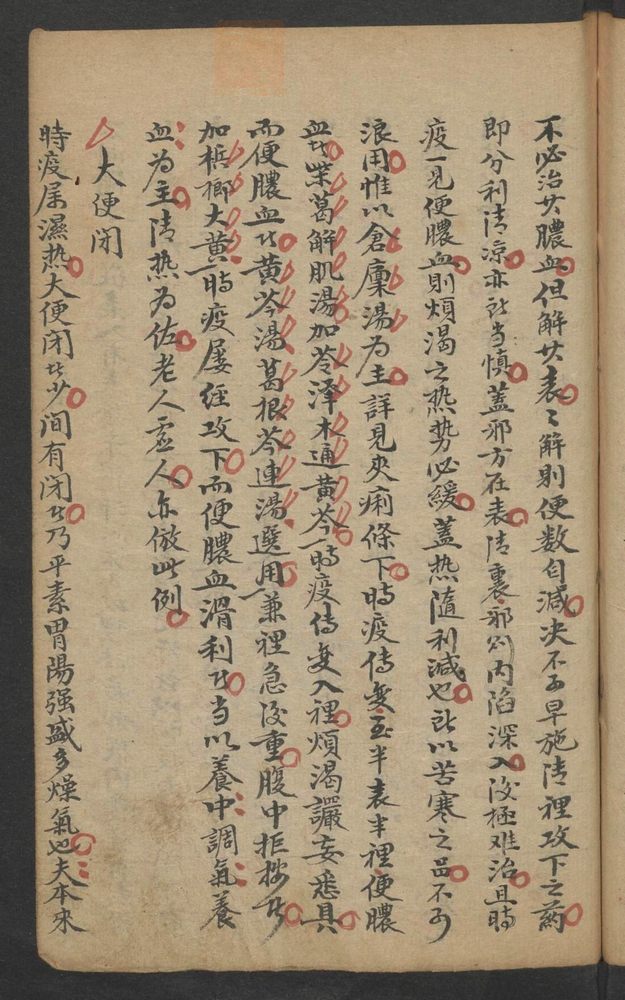 不必治其膿血但解其表〻解則便数自減决不可早施清裡攻下之药
即分利清凉亦所当慎蓋邪方在表清裏邪必内陷深入後極难治且时
疫一見便膿血則煩渴之热势必緩蓋热隨利減也所以苦寒之品不可
浪用惟以倉廩湯为主詳見夾痢條下时疫傳变至半表半裡便膿
血者柴葛解肌湯加苓泽木通黄芩时疫傳变入裡煩渴讝妄悉具
而便膿血者黄芩湯葛根芩連湯選用兼裡急後重腹中拒按者
加梹榔大黄时疫屡经攻下而便膿血滑利者当以養中調氣養
血为主清热为佐老人虚人亦倣此例
大便闭
時疫属濕热大便闭者少间有闭者乃平素胃陽强盛多燥氣也夫本来